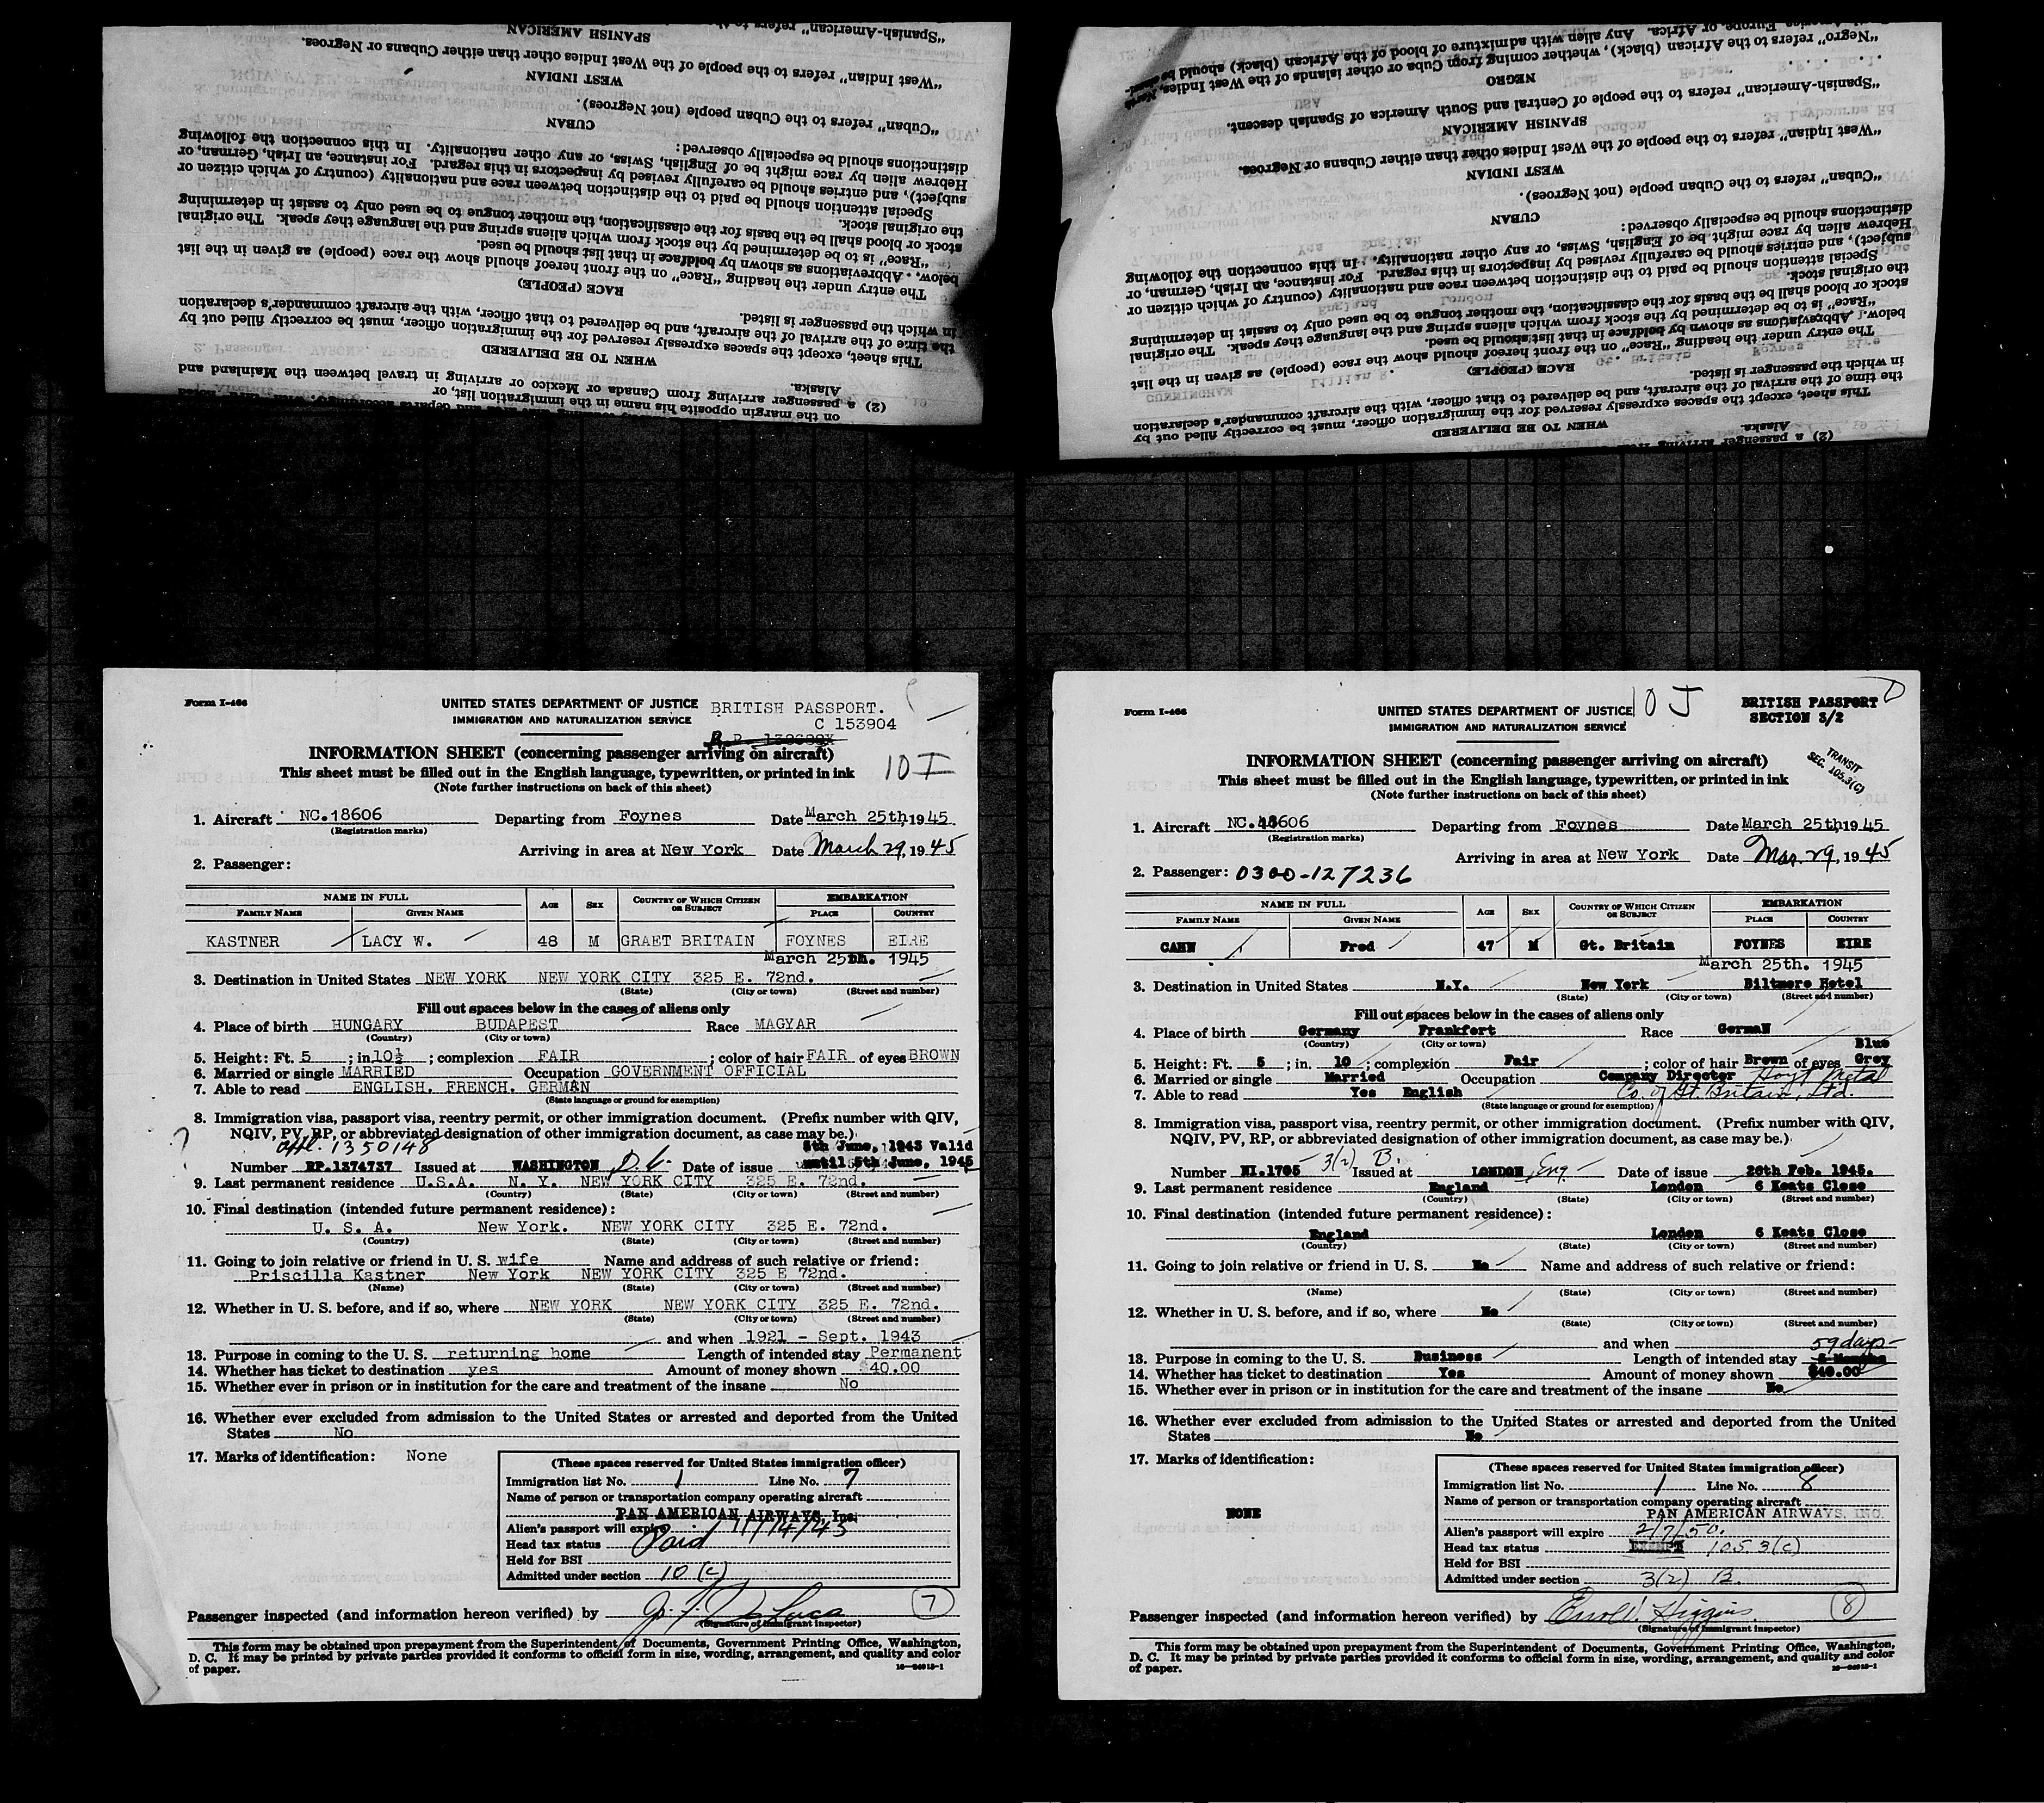 "Spanish-American"
SPANISH AMERICAN
"West Indian" refers to the people of the West Indies other than either Cubans or Negroes.
WEST INDIAN
"Cuban" refers to the Cuban people (not Negroes).
CUBAN
distinctions should be especially observed:
Hebrew alien by race might be of English, Swiss, or any other nationality. In this connection the following
subject), and entries should be carefully revised by inspectors in this regard. For instance, an Irish, German, or
Special attention should be paid to the distinction between race and nationality (country of which citizen or
the original stock.
stock or blood shall be the basis for the classification, the mother tongue to be used only to assist in determining
"Race" is to be determined by the stock from which aliens spring and the language they speak. The original
below. Abbreviations as shown by boldface in that list should be used.
The entry under the heading "Race" on the front hereof should show the race (people) as given in the list
RACE (PEOPLE)
in which the passenger is listed.
the time of the arrival of the aircraft, and be delivered to that officer, with the aircraft commander's declaration
This sheet, except the spaces expressly reserved for the immigration officer, must be correctly filled out by
WHEN TO BE DELIVERED
Alaska.
(2) a passenger arriving from Canada or Mexico or arriving in travel between the Mainland and
on the margin opposite his name in the immigration list, or
"Negro" refers to the African (black), whether coming from Cuba or other islands of the West Indies, North
Europe, or Africa. Any alien with admixture of blood of the African (black) should be
NEGRO
"Spanish-American" refers to the people of Central and South America of Spanish descent.
SPANISH AMERICAN
"West Indian" refers to the people of the West Indies other than either Cubans or Negroes.
WEST INDIAN
"Cuban" refers to the Cuban people (not Negroes).
CUBAN
distinctions should be especially observed:
Hebrew alien by race might be of English, Swiss, or any other nationality. In this connection the following
subject), and entries should be carefully revised by inspectors in this regard. For instance, an Irish, German, or
Special attention should be paid to the distinction between race and nationality (country of which citizen or
the original stock.
stock or blood shall be the basis for the classification, the mother tongue to be used only to assist in determining
"Race" is to be determined by the stock from which aliens spring and the language they speak. The original
below. Abbreviations as shown by boldface in that list should be used.
The entry under the heading "Race" on the front hereof should show the race (people) as given in the list
RACE (PEOPLE)
in which the passenger is listed.
the time of the arrival of the aircraft, and be delivered to that officer, with the aircraft commander's declaration
This sheet, except the spaces expressly reserved for the immigration officer, must be correctly filled out by
WHEN TO BE DELIVERED
Alaska.
(2) a passenger arriving
Form I-466
UNITED STATES DEPARTMENT OF JUSTICE BRITISH PASSPORT.
IMMIGRATION AND NATURALIZATION SERVICE C 153904
INFORMATION SHEET (concerning passenger arriving on aircraft)
10 I
This sheet must be filled out in the English language, typewritten, or printed in ink
(Note further instructions on back of this sheet)
1. Aircraft NC.18606 Departing from Foynes Date March 25th, 1945
(Registration marks)
Arriving in area at New York Date March 29, 1945
2. Passenger:
NAME IN FULL AGE SEX COUNTRY OF WHICH CITIZEN OR SUBJECT EMBARKATION
FAMILY NAME GIVEN NAME PLACE COUNTRY
KASTNER LACY W. 48 M GRAET BRITAIN FOYNES EIRE
March 25th. 1945
3. Destination in United States NEW YORK NEW YORK CITY 325 E. 72nd.
(State) (City or town) (Street and number)
Fill out spaces below in the cases of aliens only
4. Place of birth HUNGARY BUDAPEST Race MAGYAR
(Country) (City or town)
5. Height: Ft. 5 ; in 10½ ; complexion FAIR ; color of hair FAIR of eyes BROWN
6. Married or single MARRIED Occupation GOVERNMENT OFFICIAL
7. Able to read ENGLISH. FRENCH. GERMAN
(State language or ground for exemption)
8. Immigration visa, passport visa, reentry permit, or other immigration document. (Prefix number with QIV,
NQIV, PV, RP, or abbreviated designation of other immigration document, as case may be.)
1350148 5th June, 1943 Valid
Number RP.1374737 Issued at WASHINGTON D.C. Date of issue until 5th June, 1945
9. Last permanent residence U.S.A. N. Y. NEW YORK CITY 325 E. 72nd.
(Country) (State) (City or town) (Street and number)
10. Final destination (intended future permanent residence):
U. S. A. New York. NEW YORK CITY 325 E. 72nd.
(Country) (State) (City or town) (Street and number)
11. Going to join relative or friend in U. S. wife Name and address of such relative or friend:
Priscilla Kastner New York NEW YORK CITY 325 E 72nd.
(Name) (State) (City or town) (Street and number)
12. Whether in U. S. before, and if so, where NEW YORK NEW YORK CITY 325 E. 72nd.
(State) (City or town) (Street and number)
and when 1921 - Sept. 1943
13. Purpose in coming to the U. S. returning home Length of intended stay Permanent
14. Whether has ticket to destination yes Amount of money shown $40.00
15. Whether ever in prison or in institution for the care and treatment of the insane No
16. Whether ever excluded from admission to the United States or arrested and deported from the United
States No
17. Marks of identification: None
(These spaces reserved for United States immigration officer)
Immigration list No. 1 Line No. 7
Name of person or transportation company operating aircraft
PAN AMERICAN AIRWAYS, Inc.
Alien's passport will expire 11/14/45
Head tax status Paid
Held for BSI
Admitted under section 10 (c)
Passenger inspected (and information hereon verified) by J. F. De Luca 7
(Signature of immigrant inspector)
This form may be obtained upon prepayment from the Superintendent of Documents, Government Printing Office, Washington,
D. C. It may be printed by private parties provided it conforms to official form in size, wording, arrangement, and quality and color
of paper. 16—24913-1
Form I-466
UNITED STATES DEPARTMENT OF JUSTICE 10 J BRITISH PASSPORT
IMMIGRATION AND NATURALIZATION SERVICE SECTION 3/2
TRANSIT
SEC. 105.3(C)
INFORMATION SHEET (concerning passenger arriving on aircraft)
This sheet must be filled out in the English language, typewritten, or printed in ink
(Note further instructions on back of this sheet)
1. Aircraft NC.18606 Departing from Foynes Date March 25th, 1945
(Registration marks)
Arriving in area at New York Date Mar. 29, 1945
2. Passenger: 0300-127236
NAME IN FULL AGE SEX COUNTRY OF WHICH CITIZEN OR SUBJECT EMBARKATION
FAMILY NAME GIVEN NAME PLACE COUNTRY
CAHN Fred 47 M Gt. Britain FOYNES EIRE
March 25th. 1945
3. Destination in United States N.Y. New York Biltmore Hotel
(State) (City or town) (Street and number)
Fill out spaces below in the cases of aliens only
4. Place of birth Germany Frankfort Race German
(Country) (City or town)
Blue
5. Height: Ft. 5 ; in. 10 ; complexion Fair ; color of hair Brown of eyes Grey
6. Married or single Married Occupation Company Director Hoyt Metal
7. Able to read Yes English Co. of Gt. Britain, Ltd.
(State language or ground for exemption)
8. Immigration visa, passport visa, reentry permit, or other immigration document. (Prefix number with QIV,
NQIV, PV, RP, or abbreviated designation of other immigration document, as case may be.)
Number NI.1705 3(2) B. Issued at LONDON, Eng. Date of issue 20th Feb. 1945.
9. Last permanent residence England London 6 Keats Close
(Country) (State) (City or town) (Street and number)
10. Final destination (intended future permanent residence):
England London 6 Keats Close
(Country) (State) (City or town) (Street and number)
11. Going to join relative or friend in U. S. No Name and address of such relative or friend:
(Name) (State) (City or town) (Street and number)
12. Whether in U. S. before, and if so, where No
(State) (City or town) (Street and number)
and when 59 days
13. Purpose in coming to the U. S. Business Length of intended stay
14. Whether has ticket to destination Yes Amount of money shown $40.00
15. Whether ever in prison or in institution for the care and treatment of the insane No
16. Whether ever excluded from admission to the United States or arrested and deported from the United
States No
17. Marks of identification:
NONE
(These spaces reserved for United States immigration officer)
Immigration list No. 1 Line No. 8
Name of person or transportation company operating aircraft
PAN AMERICAN AIRWAYS, INC.
Alien's passport will expire 2/7/50.
Head tax status EXEMPT 105.3(c)
Held for BSI
Admitted under section 3(2) B.
Passenger inspected (and information hereon verified) by Errol W. Higgins 8
(Signature of immigrant inspector)
This form may be obtained upon prepayment from the Superintendent of Documents, Government Printing Office, Washington,
D. C. It may be printed by private parties provided it conforms to official form in size, wording, arrangement, and quality and color
of paper. 16—24913-1